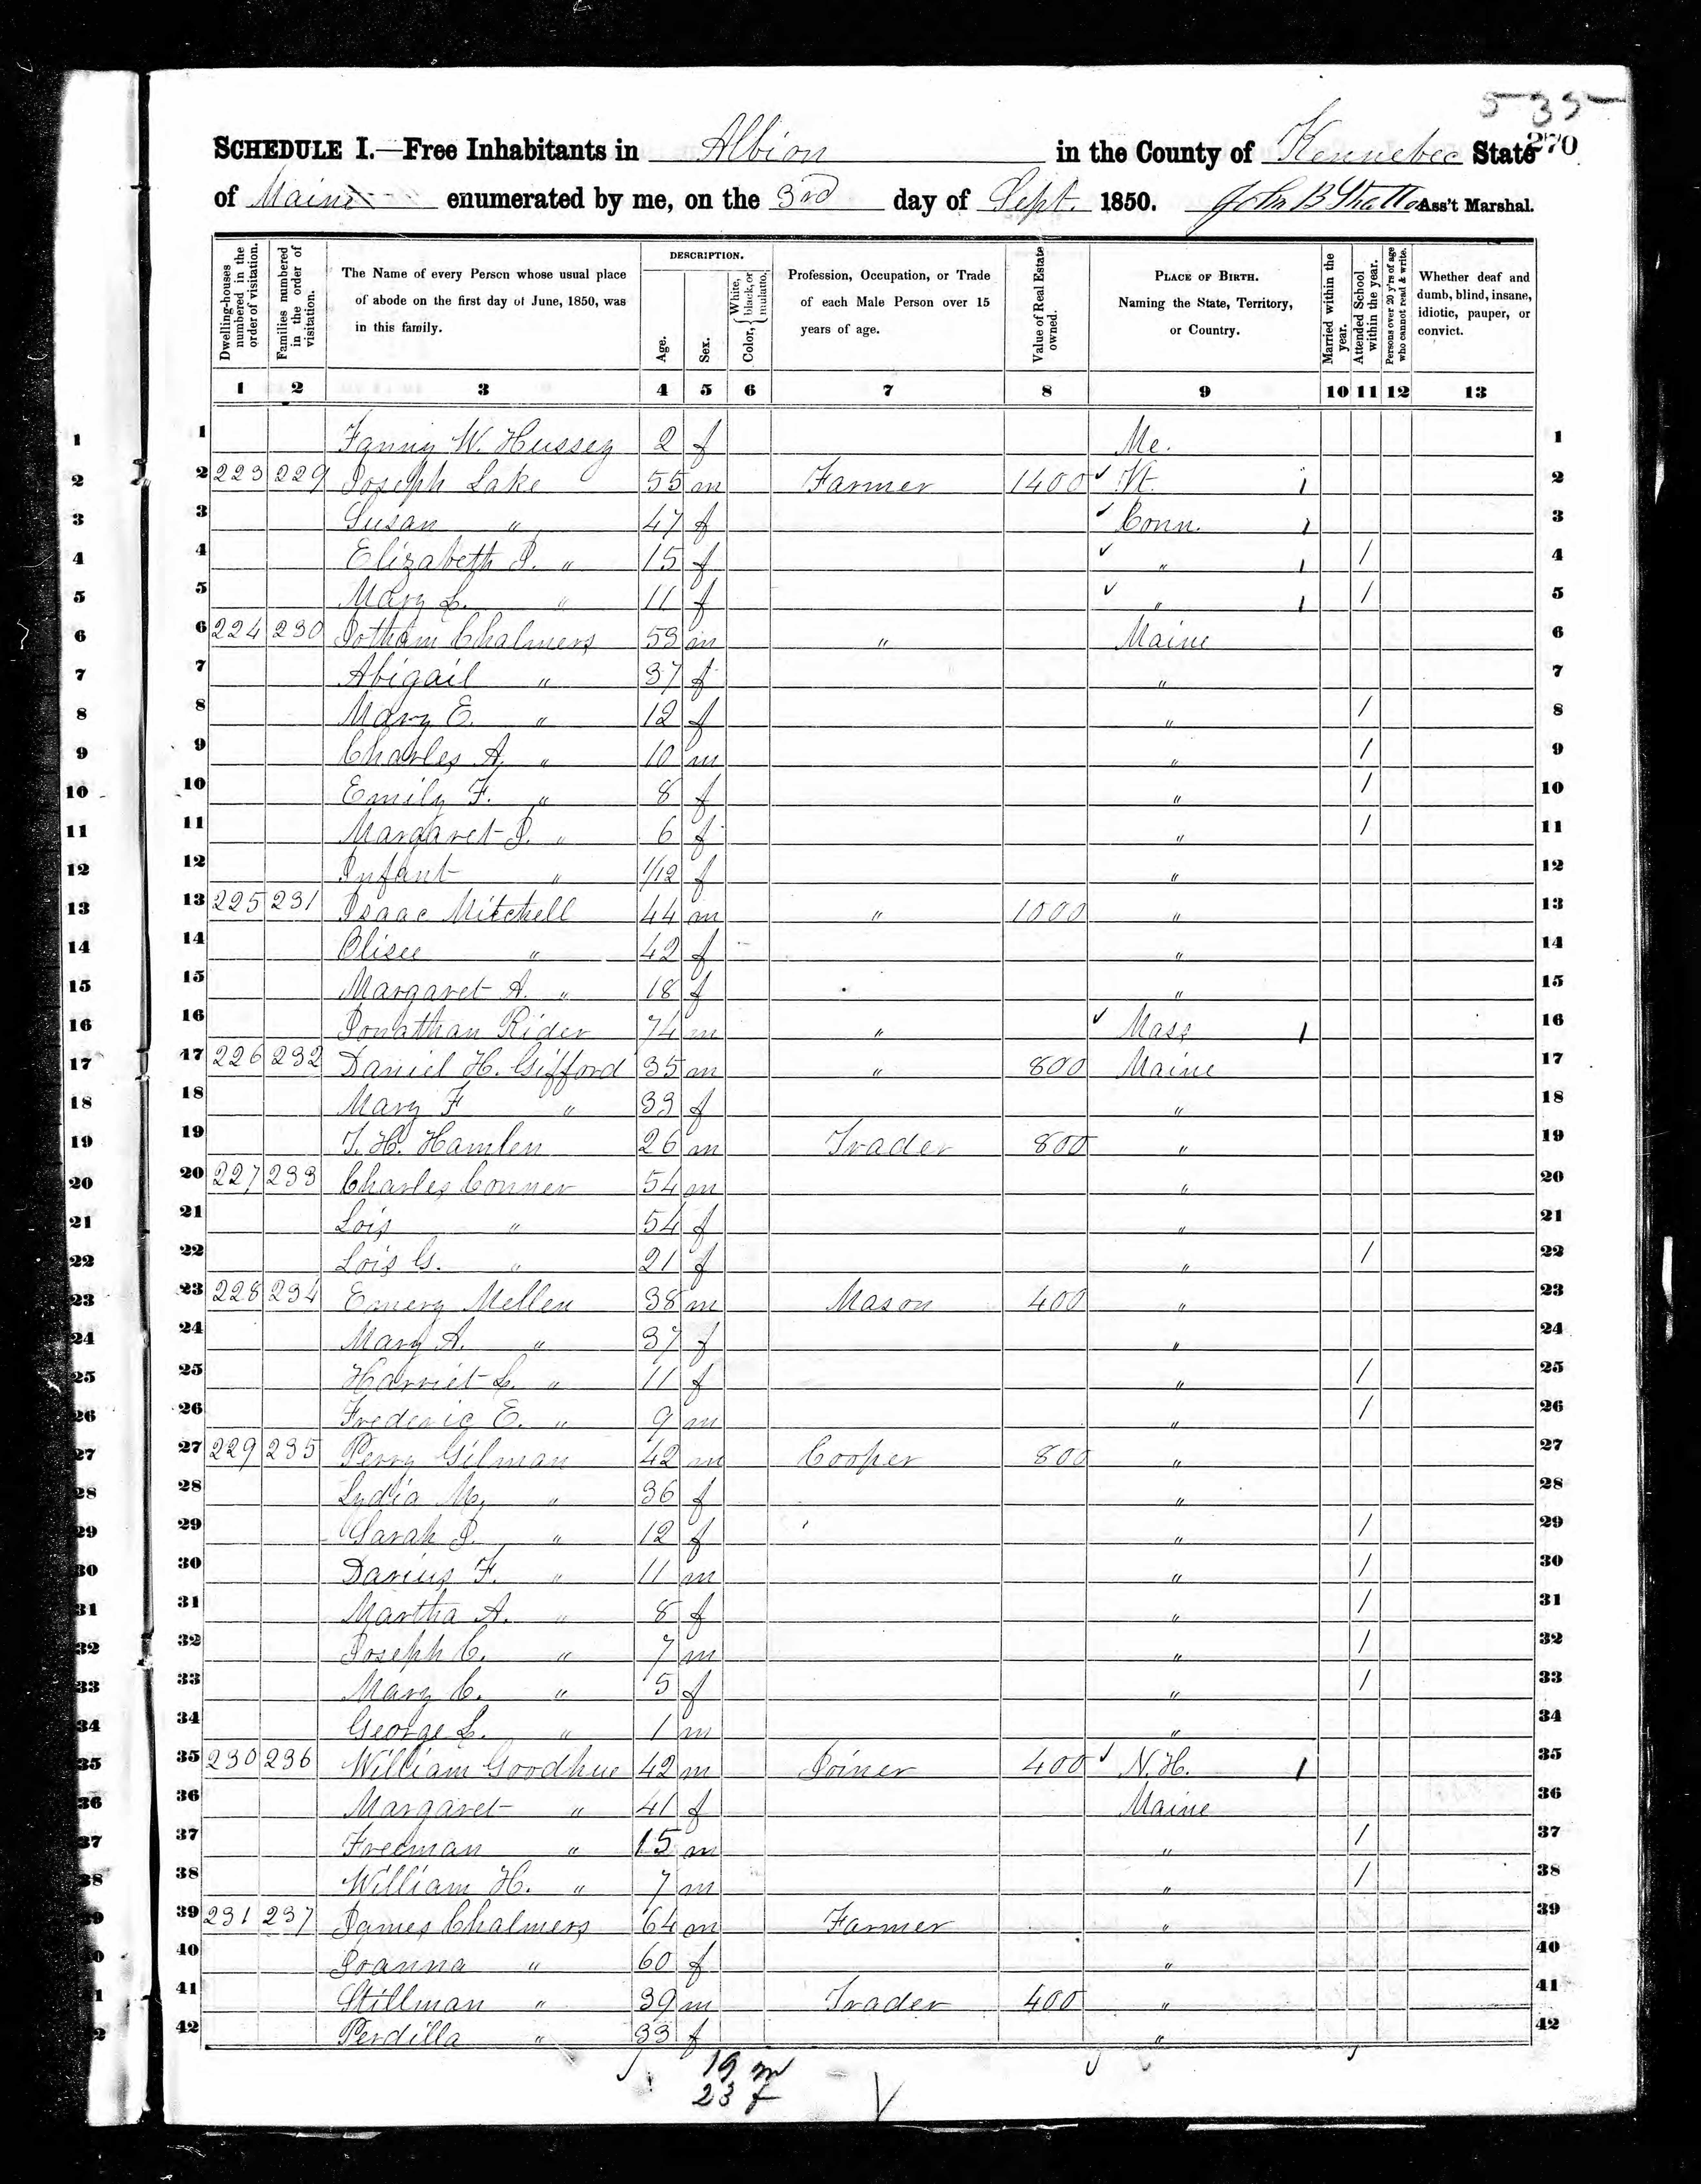 535
SCHEDULE I.—Free Inhabitants in Albion in the County of Kennebec State 270
of Maine enumerated by me, on the 3rd day of Sept. 1850. John B Stratton Ass't Marshal.
Dwelling-houses numbered in the order of visitation.
Families numbered in the order of visitation.
The Name of every Person whose usual place of abode on the first day of June, 1850, was in this family.
DESCRIPTION.
Age.
Sex.
Color, White, black, or mulatto.
Profession, Occupation, or Trade of each Male Person over 15 years of age.
Value of Real Estate owned.
PLACE OF BIRTH. Naming the State, Territory, or Country.
Married within the year.
Attended School within the year.
Persons over 20 y'rs of age who cannot read & write.
Whether deaf and dumb, blind, insane, idiotic, pauper, or convict.
1 2 3 4 5 6 7 8 9 10 11 12 13
1 Fanny W. Hussey 2 f Me. 1
2 223 229 Joseph Lake 55 m Farmer 1400 ✓ Vt. 1 2
3 Susan " 47 f ✓ Conn. 1 3
4 Elizabeth J. " 15 f ✓ " 1 / 4
5 Mary L. " 11 f ✓ " 1 / 5
6 224 230 Jotham Chalmers 53 m " Maine 6
7 Abigail " 37 f " 7
8 Mary E. " 12 f " / 8
9 Charles A. " 10 m " / 9
10 Emily F. " 8 f " / 10
11 Margaret J. " 6 f " / 11
12 Infant " 1/12 f " 12
13 225 231 Isaac Mitchell 44 m " 1000 " 13
14 Olisee " 42 f " 14
15 Margaret A. " 18 f " 15
16 Jonathan Rider 74 m " ✓ Mass 1 16
17 226 232 Daniel H. Gifford 35 m " 800 Maine 17
18 Mary F " 33 f " 18
19 T. H. Hamlen 26 m Trader 800 " 19
20 227 233 Charles Conner 54 m " 20
21 Lois " 54 f " 21
22 Lois G. " 21 f " / 22
23 228 234 Emery Mellen 38 m Mason 400 " 23
24 Mary A. " 37 f " 24
25 Harriet L. " 11 f " / 25
26 Frederic E. " 9 m " / 26
27 229 235 Perry Gilman 42 m Cooper 800 " 27
28 Lydia M. " 36 f " 28
29 Sarah J. " 12 f " / 29
30 Darius F. " 11 m " / 30
31 Martha A. " 8 f " / 31
32 Joseph C. " 7 m " / 32
33 Mary C. " 5 f " / 33
34 George L. " 1 m " 34
35 230 236 William Goodhue 42 m Joiner 400 ✓ N.H. 1 35
36 Margaret " 41 f Maine 36
37 Freeman " 15 m " / 37
38 William H. " 7 m " / 38
39 231 237 James Chalmers 64 m Farmer " 39
40 Joanna " 60 f " 40
41 Stillman " 39 m Trader 400 " 41
42 Perdilla " 33 f " 42
19 m
23 f